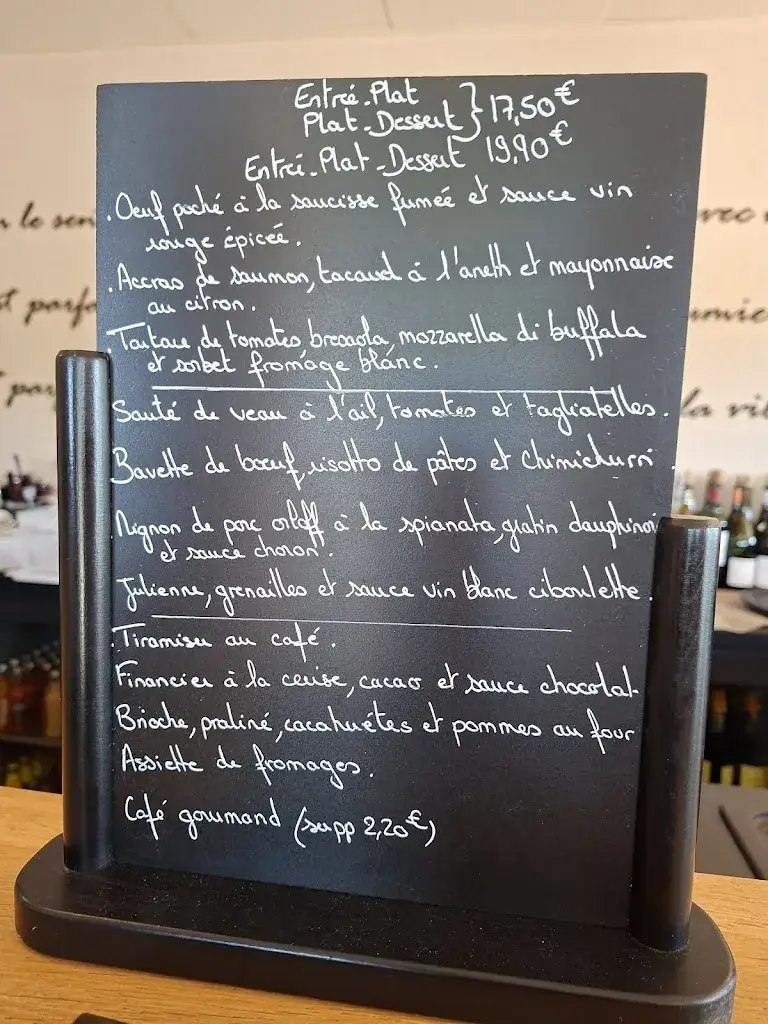 Entrée-Plat
Plat-Dessert } 17,50€
Entrée-Plat-Dessert 19,90€
. Oeuf poché à la saucisse fumée et sauce vin
rouge épicée.
. Accras de saumon, tacaud à l'aneth et mayonnaise
au citron.
. Tartare de tomates bresaola, mozzarella di buffala
et sorbet fromage blanc.
Sauté de veau à l'ail, tomates et tagliatelles.
Bavette de boeuf, risotto de pâtes et Chimichurri.
. Mignon de porc orloff à la spianata, gratin dauphinoi
et sauce choron.
Julienne, grenailles et sauce vin blanc ciboulette.
. Tiramisu au café.
Financier à la cerise, cacao et sauce chocolat
Brioche, praliné, cacahuètes et pommes au four
Assiette de fromages.
Café gourmand (supp 2,20€)
le sen
avec
parfa
umie
par
la vi